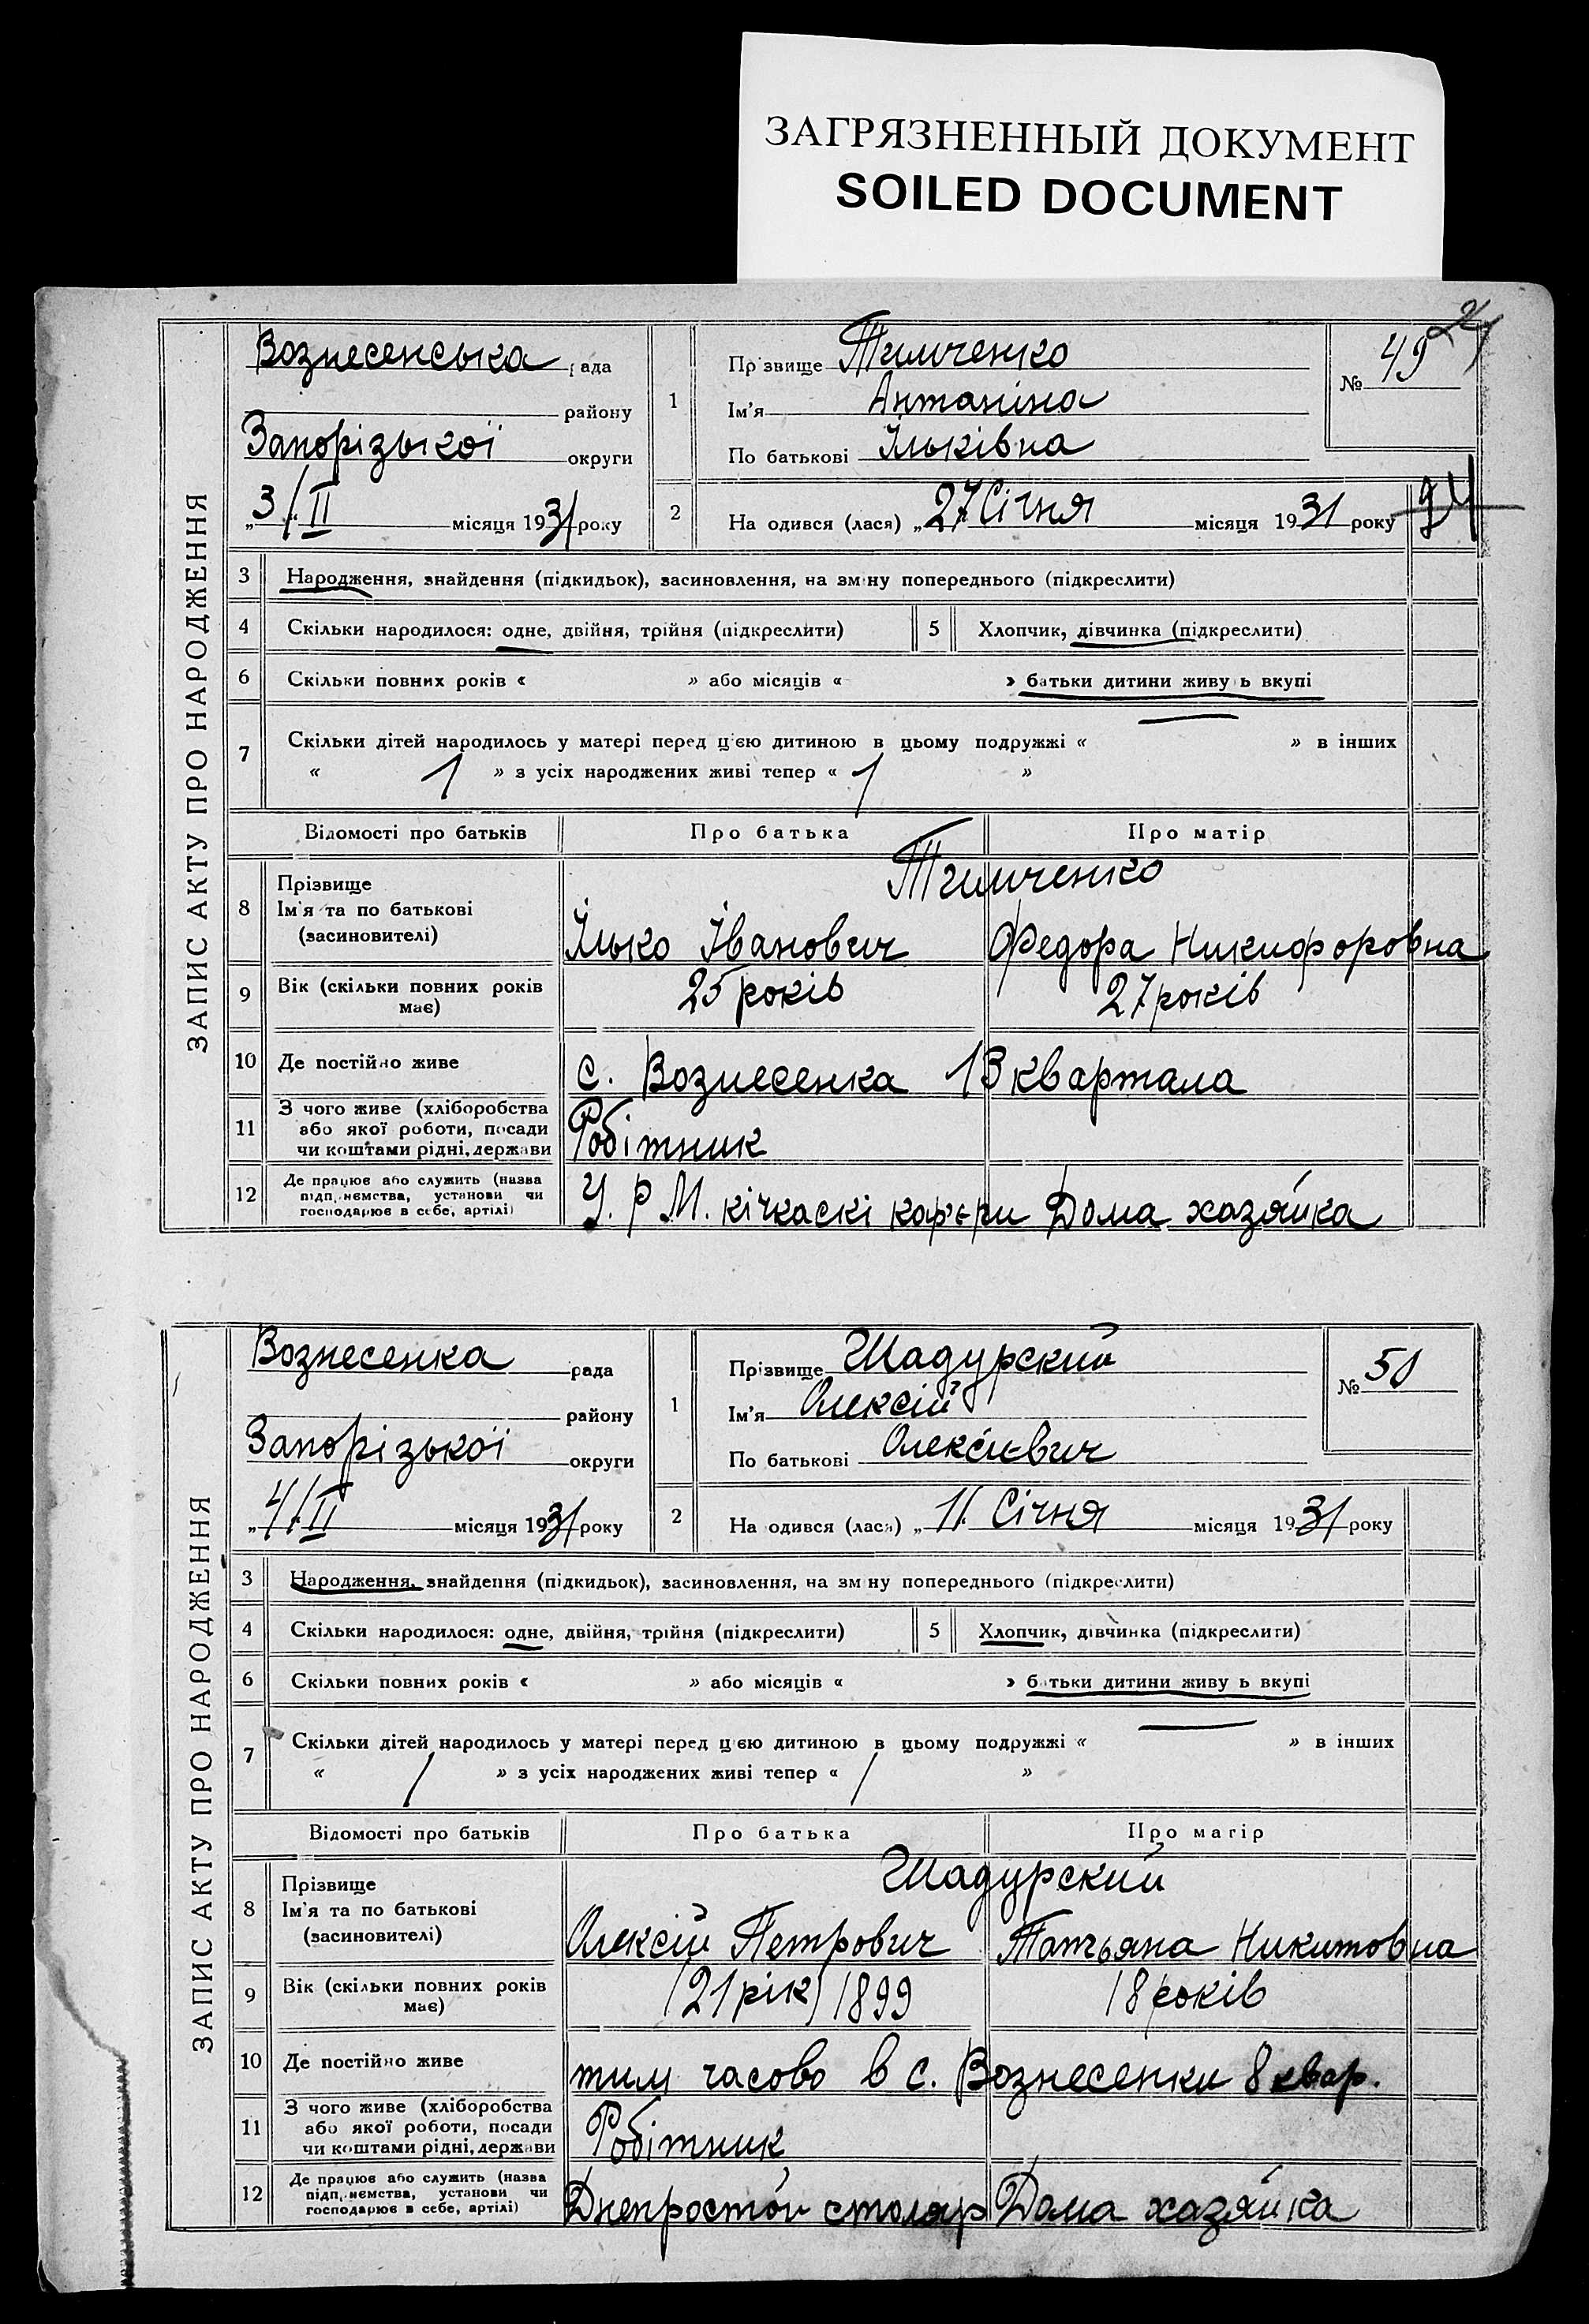 ЗАГРЯЗНЕННЫЙ ДОКУМЕНТ
SOILED DOCUMENT
ЗАПИС АКТУ ПРО НАРОДЖЕННЯ
Вознесенська рада
району
Запорізької округи
„3/II місяця 1931 року
1 Прізвище Тимченко
Ім'я Антаніна
По батькові Ільківна
№ 49
2 На одився (лася) „27 Січня місяця 1931 року
94
3 Народження, знайдення (підкидьок), засиновлення, на зміну попереднього (підкреслити)
4 Скільки народилося: одне, двійня, трійня (підкреслити) 5 Хлопчик, дівчинка (підкреслити)
6 Скільки повних років « » або місяців « » батьки дитини живу ь вкупі
7 Скільки дітей народилось у матері перед цією дитиною в цьому подружжі « — » в інших
« 1 » з усіх народжених живі тепер « 1 »
Відомості про батьків Про батька Про матір
8 Прізвище
Ім'я та по батькові
(засиновителі)
Тимченко
Ілько Іванович Федора Никифоровна
9 Вік (скільки повних років
має)
25 років 27 років
10 Де постійно живе с. Вознесенка 13 квартала
11 З чого живе (хліборобства
або якої роботи, посади
чи коштами рідні, держави
Робітник
12 Де працює або служить (назва
підп, иємства, установи чи
господарює в себе, артілі)
У. Р М. кічкаскі кар'єри Дома хазяйка
ЗАПИС АКТУ ПРО НАРОДЖЕННЯ
Вознесенка рада
району
Запорізької округи
„4/II місяця 1931 року
1 Прізвище Шадурский
Ім'я Олексій
По батькові Олексієвич
№ 50
2 На одився (лася) „11. Січня місяця 1931 року
3 Народження, знайдення (підкидьок), засиновлення, на зм ну попереднього (підкреслити)
4 Скільки народилося: одне, двійня, трійня (підкреслити) 5 Хлопчик, дівчинка (підкреслити)
6 Скільки повних років « » або місяців « » б тьки дитини живу ь вкупі
7 Скільки дітей народилось у матері перед цією дитиною в цьому подружжі « — » в інших
« / » з усіх народжених живі тепер « / »
Відомості про батьків Про батька Про матір
8 Прізвище
Ім'я та по батькові
(засиновителі)
Шадурский
Олексій Петрович Татьяна Никитовна
9 Вік (скільки повних років
має)
(21 рік) 1899 18 років
10 Де постійно живе тим часово в с. Вознесенки 8 квар.
11 З чого живе (хліборобства
або якої роботи, посади
чи коштами рідні, держави
Робітник
12 Де працює або служить (назва
підп, иємства, установи чи
господарює в себе, артілі)
Днепростой столяр Дома хазяйка